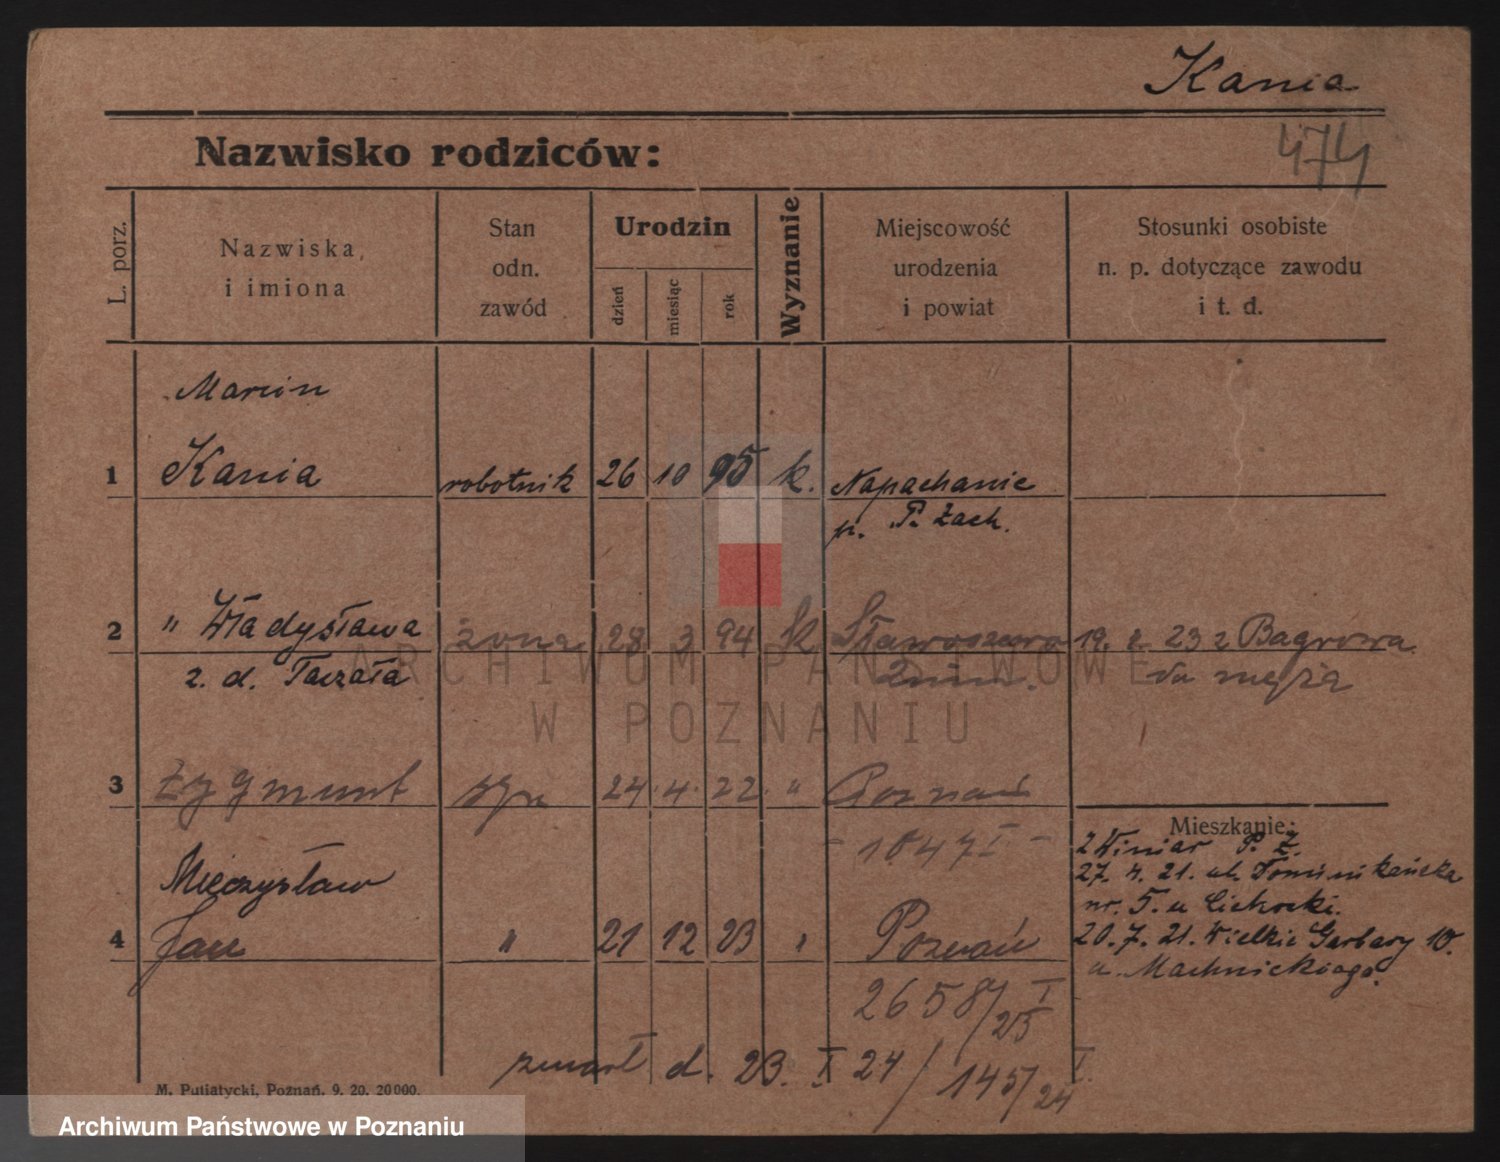 Kania
474
Nazwisko rodziców:
L. porz.
Nazwiska
i imiona
Stan
odn.
zawód
Urodzin
dzień
miesiąc
rok
Wyznanie
Miejscowość
urodzenia
i powiat
Stosunki osobiste
n. p. dotyczące zawodu
i t. d.
Marcin
1 Kania robotnik 26 10 95 k. Napachanie
p. P. Zach.
2 " Władysława żona 28 3 94 k Sławoszewo 19. 2. 23 z Bagrowa
z. d. Taczała Żnin. do męża
3 Zygmunt syn 24. 4. 22. " Poznań
- 1047 I -
Mieczysław
4 Jan " 21 12 23 " Poznań
2658/23 I
zmarł d. 23. I 24 / 145/24 I.
Mieszkanie:
z Winiar P. Z.
27. 4. 21. ul. Dominikańska
nr. 5. u Cichocki.
20. 7. 21. Wielkie Garbary 10.
u. Machnickiego.
M. Putiatycki, Poznań. 9. 20. 20000.
ARCHIWUM PAŃSTWOWE
W POZNANIU
Archiwum Państwowe w Poznaniu